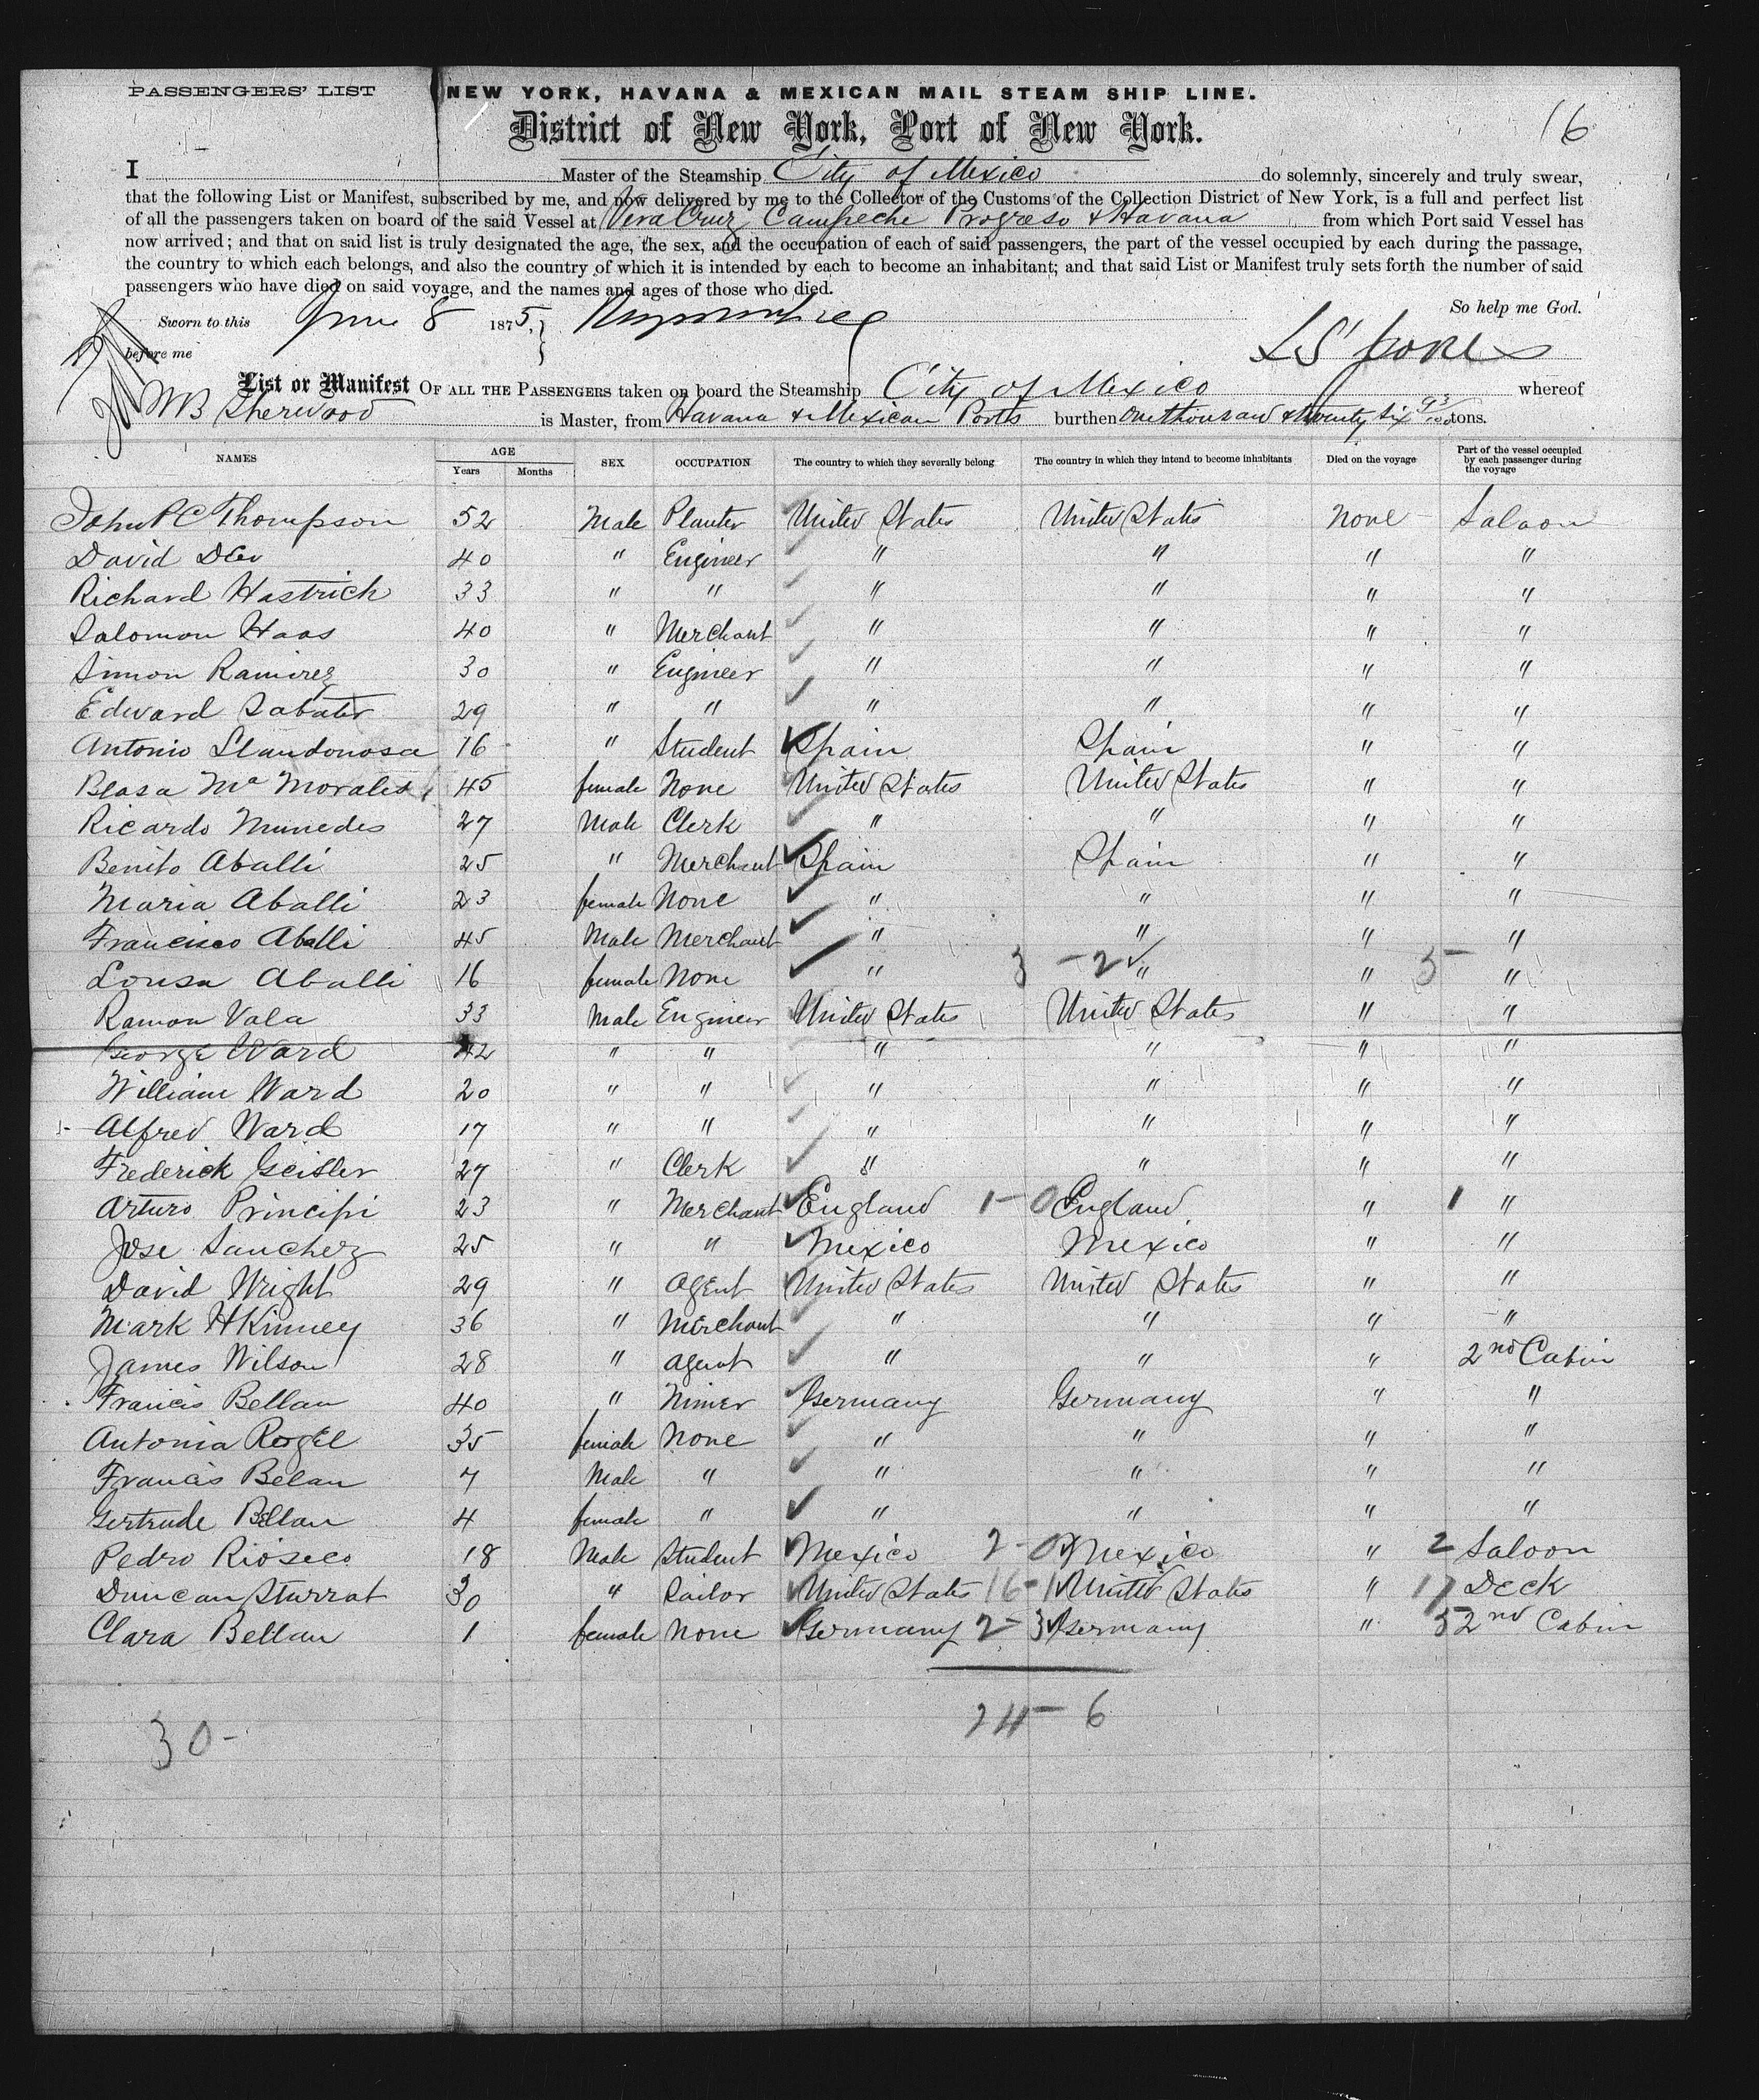 PASSENGERS' LIST
NEW YORK, HAVANA & MEXICAN MAIL STEAM SHIP LINE.
16
District of New York, Port of New York.
I Master of the Steamship City of Mexico do solemnly, sincerely and truly swear,
that the following List or Manifest, subscribed by me, and now delivered by me to the Collector of the Customs of the Collection District of New York, is a full and perfect list
of all the passengers taken on board of the said Vessel at Vera Cruz Campeche Progreso & Havana from which Port said Vessel has
now arrived; and that on said list is truly designated the age, the sex, and the occupation of each of said passengers, the part of the vessel occupied by each during the passage,
the country to which each belongs, and also the country of which it is intended by each to become an inhabitant; and that said List or Manifest truly sets forth the number of said
passengers who have died on said voyage, and the names and ages of those who died.
So help me God.
Sworn to this June 8 1875.
before me
List or Manifest OF ALL THE PASSENGERS taken on board the Steamship City of Mexico whereof
WB Sherwood is Master, from Havana & Mexican Ports burthen One thousand & twenty six 93/100 tons.
NAMES AGE SEX OCCUPATION The country to which they severally belong The country in which they intend to become inhabitants Died on the voyage Part of the vessel occupied by each passenger during the voyage
Years Months
John P C Thompson 52 Male Planter United States United States None Saloon
David 40 " Engineer " " " "
Richard Hastrich 33 " " " " " "
Salomon Haas 40 " Merchant " " " "
Simon Ramirez 30 " Engineer " " " "
Edward Sabater 29 " " " " " "
Antonio Llandonosa 16 " Student Spain Spain " "
Blasa Ma Morales 45 female None United States United States " "
Ricardo Munedes 27 Male Clerk " " " "
Benito Aballi 25 " Merchant Spain Spain " "
Maria Aballi 23 female None " " " "
Francisco Aballi 45 Male Merchant " " " "
Louisa Aballi 16 female None " 3 - 2 " " 5 "
Ramon Vala 33 Male Engineer United States United States " "
George Ward 42 " " " " " "
William Ward 20 " " " " " "
Alfred Ward 17 " " " " " "
Frederick Geisler 27 " Clerk " " " "
Arturo Principi 23 " Merchant England 1 - 0 England " 1 "
Jose Sanchez 25 " " Mexico Mexico " "
David Wright 29 " Agent United States United States " "
Mark H Kinney 36 " Merchant " " " "
James Wilson 28 " Agent " " " 2nd Cabin
Francis Bellan 40 " Miner Germany Germany " "
Antonia Rogel 35 female None " " " "
Francis Belan 7 Male " " " " "
Gertrude Bellan 4 female " " " " "
Pedro Rioseco 18 Male Student Mexico 2 - 0 Mexico " 2 Saloon
Duncan Sturrat 30 " Sailor United States 16 - 1 United States " 17 Deck
Clara Bellan 1 female None Germany 2 - 3 Germany " 5 2nd Cabin
24 - 6
30 -